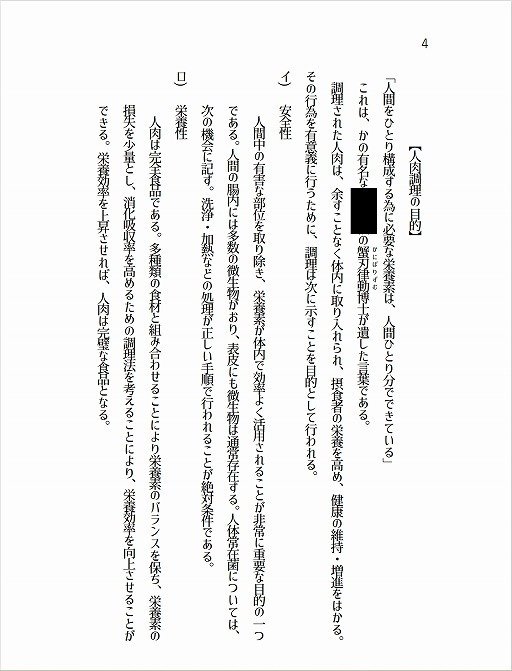 4
【人肉調理の目的】
「人間をひとり構成する為に必要な栄養素は、人間ひとり分でできている」
これは、かの有名な の蟹刃律動博士が遺した言葉である。
かにばりずむ
調理された人肉は、余すことなく体内に取り入れられ、摂食者の栄養を高め、健康の維持・増進をはかる。
その行為を有意義に行うために、調理は次に示すことを目的として行われる。
イ) 安全性
人間中の有害な部位を取り除き、栄養素が体内で効率よく活用されることが非常に重要な目的の一つ
である。人間の腸内には多数の微生物がおり、表皮にも微生物は通常存在する。人体常在菌については、
次の機会に記す。洗浄・加熱などの処理が正しい手順で行われることが絶対条件である。
ロ) 栄養性
人肉は完全食品である。多種類の食材と組み合わせることにより栄養素のバランスを保ち、栄養素の
損失を少量とし、消化吸収率を高めるための調理法を考えることにより、栄養効率を向上させることが
できる。栄養効率を上昇させれば、人肉は完璧な食品となる。